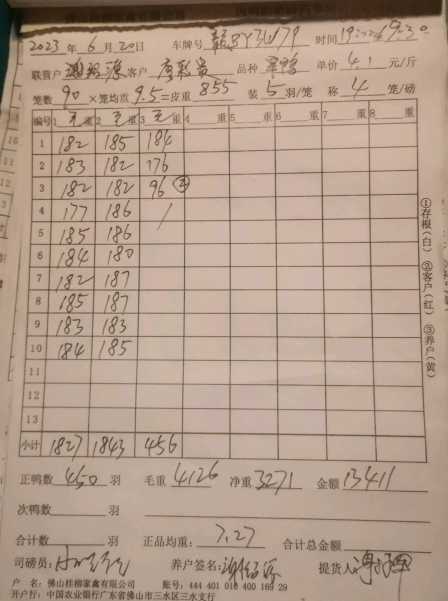 2023年6月20日 车牌号 时间19: 19:30
联营户 客户 品种 单价4.1元/斤
笼数90×笼均重9.5=皮重855 装5羽/笼 称4笼/磅
编号 1 毛重 2 毛重 3 毛重 4 重 5 重 6 重 7 重 8 重
1 182 185 184
2 183 182 176
3 182 182 96 ②
4 177 186 /
5 185 186
6 184 180
7 182 187
8 185 187
9 183 183
10 184 185
11
12
13
小计 1827 1843 456
①存根(白) ②客户(红) ③养户(黄)
正鸭数450羽 毛重4126 净重3271 金额13411
次鸭数 羽
合计数 羽 正品均重:7.27 合计总金额
司磅员: 养户签名: 提货人:
户 名:佛山桂柳家禽有限公司 账号:444 401 010 400 169 29
开户行:中国农业银行广东省佛山市三水区三水支行